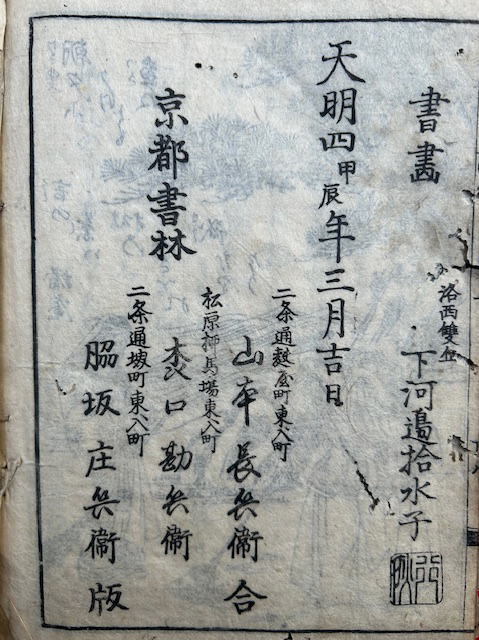 書畫
洛西雙丘
下河邉拾水子
天明四甲辰年三月吉日
京都書林
二条通麩屋町東入町
山本長兵衛
合
松原柳馬場東入町
口勘兵衛
二条通堺町東入町
脇坂庄兵衛
版